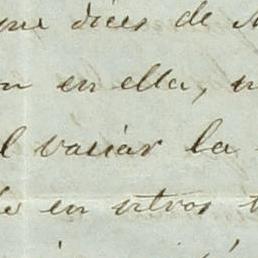 que dices de
en ella,
vaciar la
en otros